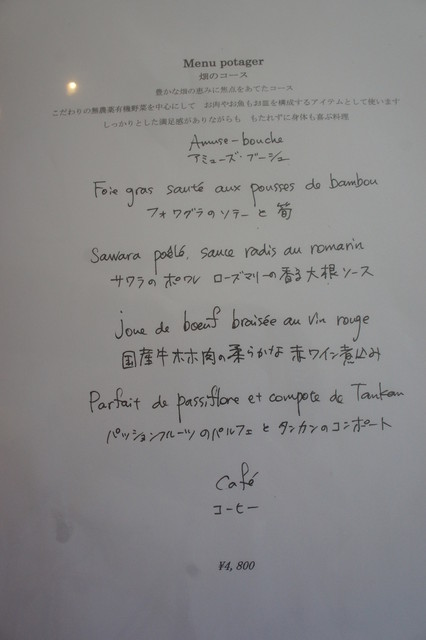 Menu potager
畑のコース
豊かな畑の恵みに焦点をあてたコース
こだわりの無農薬有機野菜を中心にして お肉やお魚もお皿を構成するアイテムとして使います
しっかりとした満足感がありながらも もたれずに身体も喜ぶ料理
Amuse-bouche
アミューズ・ブーシュ
Foie gras sauté aux pousses de bambou
フォワグラのソテーと筍
Sawara poêlé, sauce radis au romarin
サワラのポワレ ローズマリーの香る大根ソース
joue de boeuf braisée au vin rouge
国産牛ホホ肉の柔らかな赤ワイン煮込み
Parfait de passiflore et compote de Tankan
パッションフルーツのパルフェとタンカンのコンポート
Café
コーヒー
¥4,800